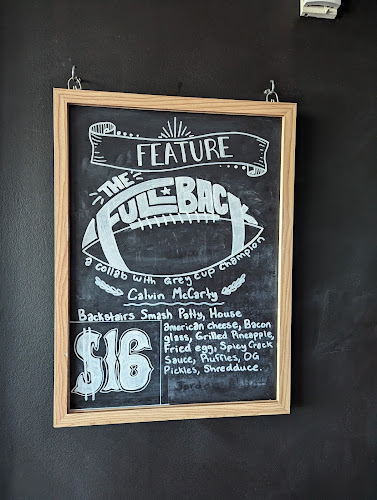 FEATURE
THE
FULLBACK
a collab with Grey Cup Champion
Calvin McCarty
Backstairs Smash Patty, House
american cheese, Bacon
glass, Grilled Pineapple,
Fried egg, Spicy Crack
Sauce, Ruffles, OG
Pickles, Shredduce.
$16